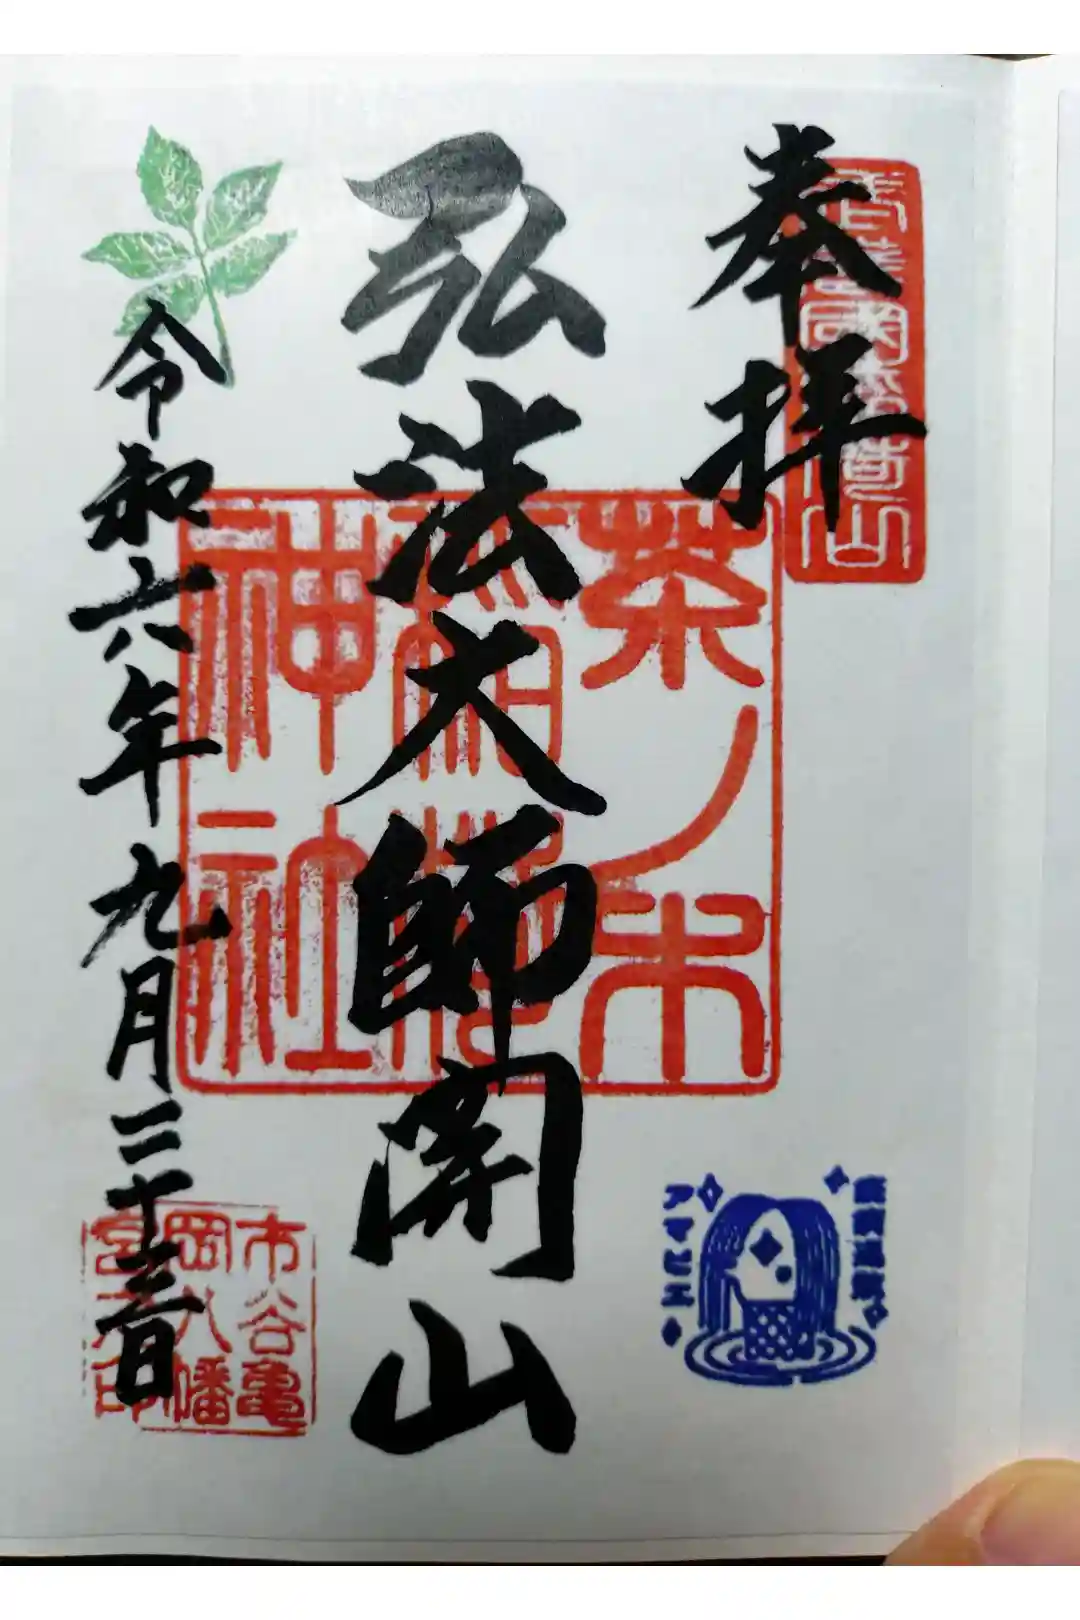 奉拝
弘法大師開山
令和六年九月二十三日
茶ノ木
稲荷
神社
市谷亀
岡八幡
宮之印
アマビエ